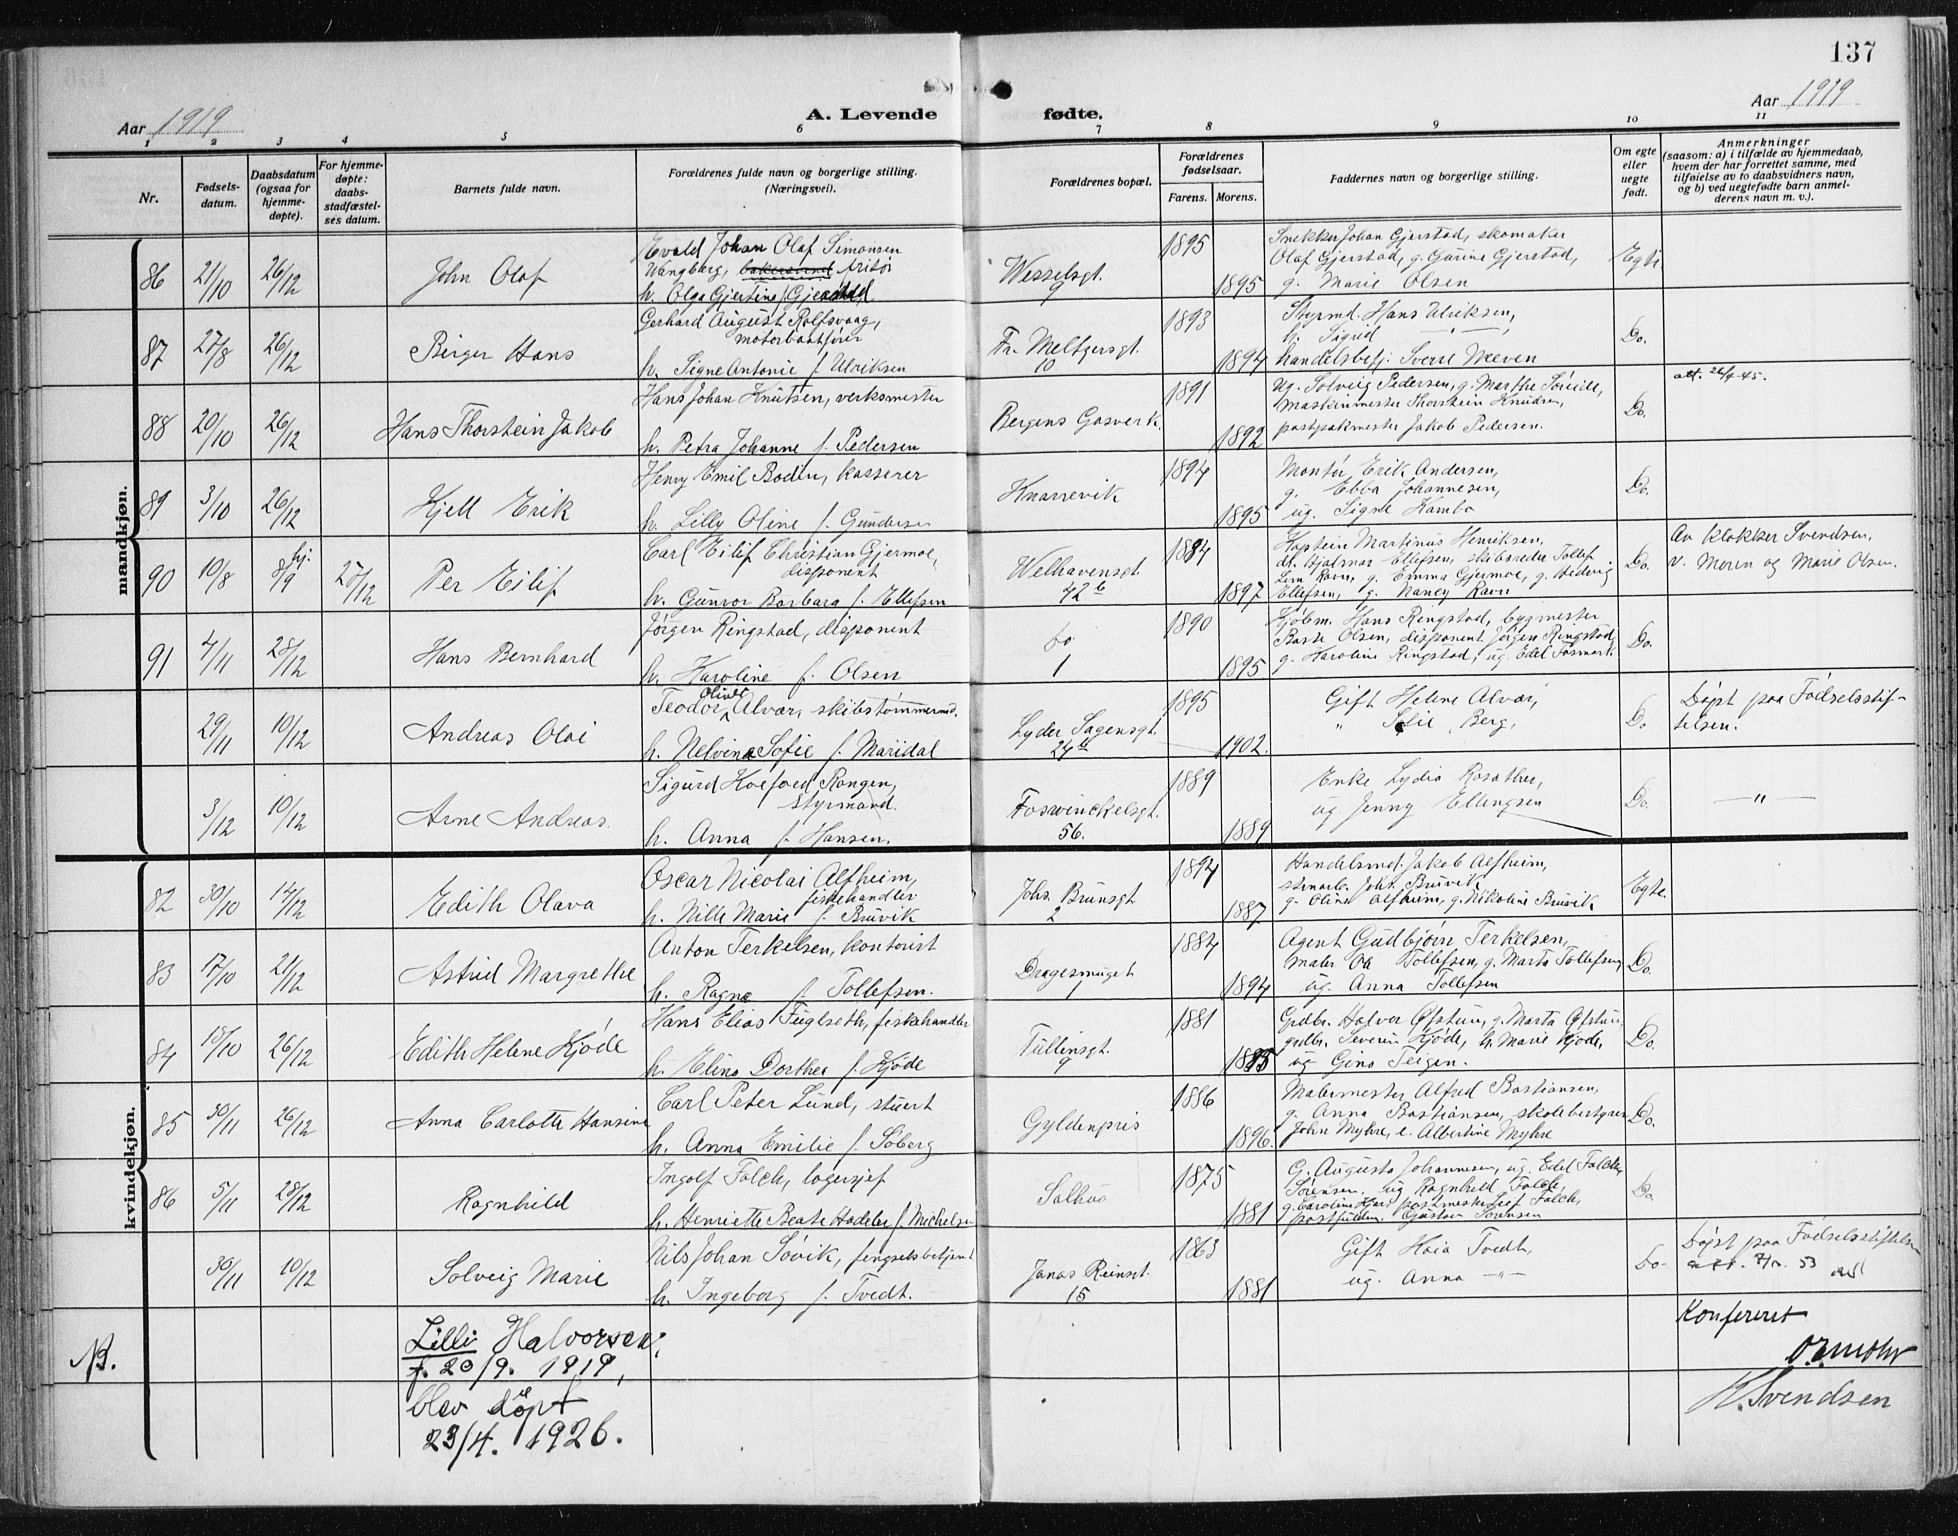 137
Aar 1919
A. Levende fødte.
Aar 1919
1 2 3 4 5 6 7 8 9 10 11
Nr.
Fødsels-
datum.
Daabsdatum
(ogsaa for
hjemme-
døpte).
For hjemme-
døpte:
daabs-
stadfæstel-
ses datum.
Barnets fulde navn.
Forældrenes fulde navn og borgerlige stilling.
(Næringsvei).
Forældrenes bopæl.
Forældrenes
fødselsaar.
Farens. Morens.
Faddernes navn og borgerlige stilling.
Om egte
eller
uegte
født.
Anmerkninger
(saasom: a) i tilfælde av hjemmedaab,
hvem der har forrettet samme, med
tilføielse av to daabsvidners navn,
og b) ved uegtefødte barn anmel-
derens navn m. v.).
mandkjøn.
86 21/10 26/12 John Olaf
Evald Johan Olaf Simonsen
Wangberg, bakersvend
h. Olga Gjertine f. Gjerstad
Wesselsgt.
9
1895
1895
Snekker Johan Gjerstad, skomaker
Olaf Gjerstad, g. Garine Gjerstad,
g. Marie Olsen
Egte
87 27/8 26/12 Birger Hans
Gerhard August Rolfsvaag,
motorbaatfører
h. Signe Antonie f. Ulriksen
Fr. Meltzersgt.
10
1893
1894
Styrmd. Hans Ulriksen,
h. Sigrid — " —,
handelsbetj. Sverre Næven
Do.
88 20/10 26/12 Hans Thorstein Jakob
Hans Johan Knutsen, verksmester
h. Petra Johanne f. Pedersen
Bergens Gasverk.
1891
1892
Ug. Solveig Pedersen, g. Marthe Søreide,
maskinmester Thorstein Knudsen,
postpakmester Jakob Pedersen.
Do.
att. 26/4-45.
89 3/10 26/12 Kjell Erik
Henry Emil Bodin, kasserer
h. Lilly Oline f. Gundersen
Knarrevik
1894
1895
Montør Erik Andersen,
g. Ebba Johannesen,
ug. Signe Kambo
Do.
90 10/8 hj. 8/9 27/12 Per Eilif
Carl Eilif Christian Gjermoe,
disponent
h. Gunvor Barbara f. Ellefsen
Welhavensgt.
42 b
1884
1897
Kaptein Martinus Henriksen,
dr. Hjalmar Ellefsen, skibsreder Tollef
Lim Ravn, g. Emma Gjermoe, g. Hedvig
Ellefsen, g. Nancy Ravn
Do.
Av klokker Svendsen,
v. Moren og Marie Olsen.
91 4/11 28/12 Hans Bernhard
Jørgen Ringstad, disponent
h. Karoline f. Olsen
Do
1
1890
1895
Kjøbm. Hans Ringstad, bygmester
Baste Olsen, disponent Jørgen Ringstad,
g. Karoline Ringstad, ug. Edel Fosmark.
Do.
29/11 10/12 Andreas Olai
Teodor Oliver Alvær, skibstømmermd.
h. Nelvina Sofie f. Maridal
Lyder Sagensgt.
24
1895
1902.
Gift Helene Alvær,
" Berg,
Do
Døpt paa Fødselsstif-
telsen.
3/12 10/12 Arne Andreas.
Sigurd Koefoed Rongen,
styrmand.
h. Anna f. Hansen.
Foswinckelsgt.
56.
1889
1889
Enke Lydia Rosather,
ug. Jenny Ellingsen
Do.
— " —
kvindekjøn.
82 30/10 14/12 Edith Olava
Oscar Nicolai Alfheim,
fiskehandler
h. Nille Marie f. Bruvik
Johs. Brunsgt.
2
1894
1887
Handelsmd. Jakob Alfheim,
Joh. Bruvik
g. Oline Alfheim, g. Nikoline Bruvik
Egte.
83 17/10 21/12 Astrid Margrethe
Anton Terkelsen, kontorist
h. Ragna f. Tollefsen.
Dragesmuget
1
1884
1894
Agent Gudbjørn Terkelsen,
maler Ole Tollefsen, g. Marta Tollefsen,
ug. Anna Tollefsen
Do.
84 18/10 26/12 Edith Helene Kjøde
Hans Elias Fuglseth, fiskehandler
h. Elina Dorthea f. Kjøde
Tullinsgt.
9
1881
1885
Grdbr. Halvor Øfstun, g. Marta Øfstun,
grdbr. Severin Kjøde, h. Marie Kjøde,
ug Gina Teigen.
Do.
85 30/11 26/12 Anna Carlotte Hansine
Carl Peter Lund, stuert
h. Anna Emilie f. Søberg
Gyldenpris
1886
1896.
Malermester Alfred Bastiansen,
g. Anna Bastiansen, skolebestyrer
John Myhre, e. Albertine Myhre
Do.
86 5/11 28/12 Ragnhild
Ingolf Falch, lagersjef
h. Henriette Beate Hadeler f. Michelsen
Salhus
1875
1881
G. Augusta Johannesen, ug. Edel Falch,
Sørensen, ug Ragnhild Falch,
g. Caroline postmester Leif Falch,
postfuldm. Gustav Sørensen
Do
30/11 10/12 Solveig Marie
Nils Johan Søvik, fengselsbetjent
h. Ingeborg f. Tvedt.
Jonas Reinsgt.
15
1863
1881
Gift Kaia Tvedt,
ug. Anna — " —
Do-
Døpt paa Fødselsstiftelsen
att. 53
NB.
Lilli Halvorsen,
f. 20/9. 1919,
blev døpt
23/4. 1926.
Konfereret
K. Svendsen